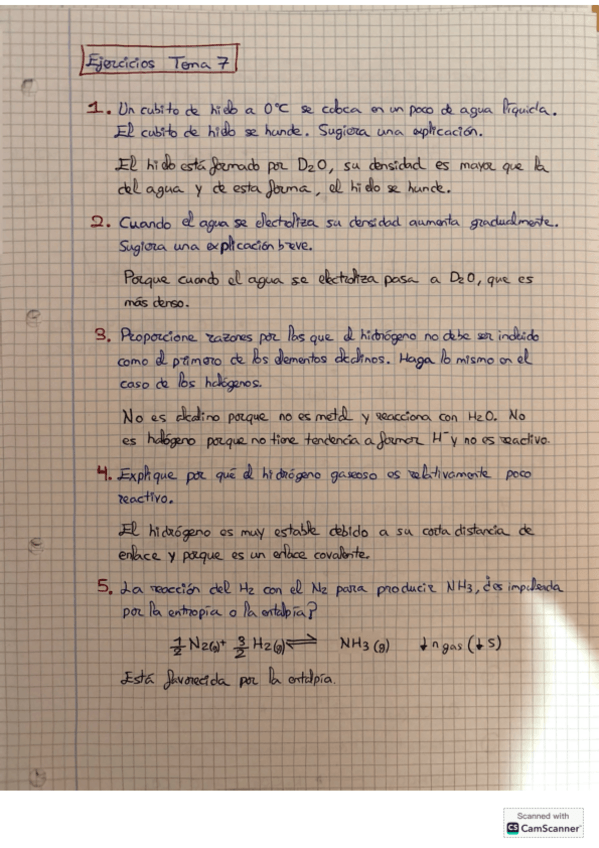 Ejercicios Tema 7
1. Un cubito de hielo a 0°C se coloca en un poco de agua líquida.
El cubito de hielo se hunde. Sugiera una explicación.
El hielo está formado por D2O, su densidad es mayor que la
del agua y de esta forma, el hielo se hunde.
2. Cuando el agua se electroliza su densidad aumenta gradualmente.
Sugiera una explicación breve.
Porque cuando el agua se electroliza pasa a D2O, que es
más denso.
3. Proporcione razones por las que el hidrógeno no debe ser incluido
como el primero de los elementos alcalinos. Haga lo mismo en el
caso de los halógenos.
No es alcalino porque no es metal y reacciona con H2O. No
es halógeno porque no tiene tendencia a formar H⁻ y no es reactivo.
4. Explique por qué el hidrógeno gaseoso es relativamente poco
reactivo.
El hidrógeno es muy estable debido a su corta distancia de
enlace y porque es un enlace covalente.
5. La reacción del H2 con el N2 para producir NH3, ¿es impulsada
por la entropía o la entalpía?
1/2 N2(g) + 3/2 H2(g) ⇌ NH3 (g) ↓n gas (↓S)
Está favorecida por la entalpía.
Scanned with
CS CamScanner